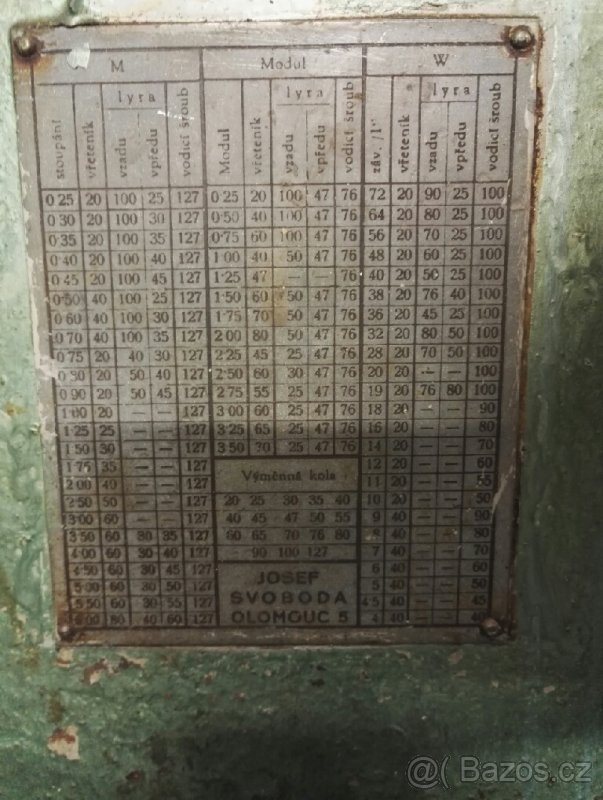 M Modul W
stoupání vřeteník lyra vzadu vpředu vodicí šroub Modul vřeteník lyra vzadu vpředu vodicí šroub záv./1" vřeteník lyra vzadu vpředu vodicí šroub
0·25 20 100 25 127 0·25 20 100 47 76 72 20 90 25 100
0·30 20 100 30 127 0·50 40 100 47 76 64 20 80 25 100
0·35 20 100 35 127 0·75 60 100 47 76 56 20 70 25 100
0·40 20 100 40 127 1·00 40 50 47 76 48 20 60 25 100
0·45 20 100 45 127 1·25 47 — — 76 40 20 50 25 100
0·50 40 100 25 127 1·50 60 50 47 76 38 20 76 40 100
0·60 40 100 30 127 1·75 70 50 47 76 36 20 45 25 100
0·70 40 100 35 127 2·00 80 50 47 76 32 20 80 50 100
0·75 20 40 30 127 2·25 45 25 47 76 28 20 70 50 100
20 50 40 127 2·50 60 30 47 76 20 20 — — 100
0·90 20 50 45 127 2·75 55 25 47 76 19 20 76 80 100
1·00 20 — — 127 3·00 60 25 47 76 18 20 — — 90
1·25 25 — — 127 3·25 65 25 47 76 16 20 — — 80
1·50 30 — — 127 3·50 30 25 47 76 14 20 — — 70
1·75 35 — — 127 12 20 — — 60
2·00 40 — — 127 Výměnná kola 11 20 — — 55
2·50 50 — — 127 20 25 30 35 40 10 20 — — 50
3·00 60 — — 127 40 45 47 50 55 9 40 — — 90
3·50 60 30 35 127 60 65 70 76 80 8 40 — — 80
4·00 60 30 40 127 90 100 127 7 40 — — 70
4·50 60 30 45 127 6 40 — — 60
5·00 60 30 50 127 JOSEF 5 40 — — 50
5·50 60 30 55 127 SVOBODA 4·5 40 — — 45
80 40 60 127 OLOMOUC 5 4 40 — — 40
Bazos.cz